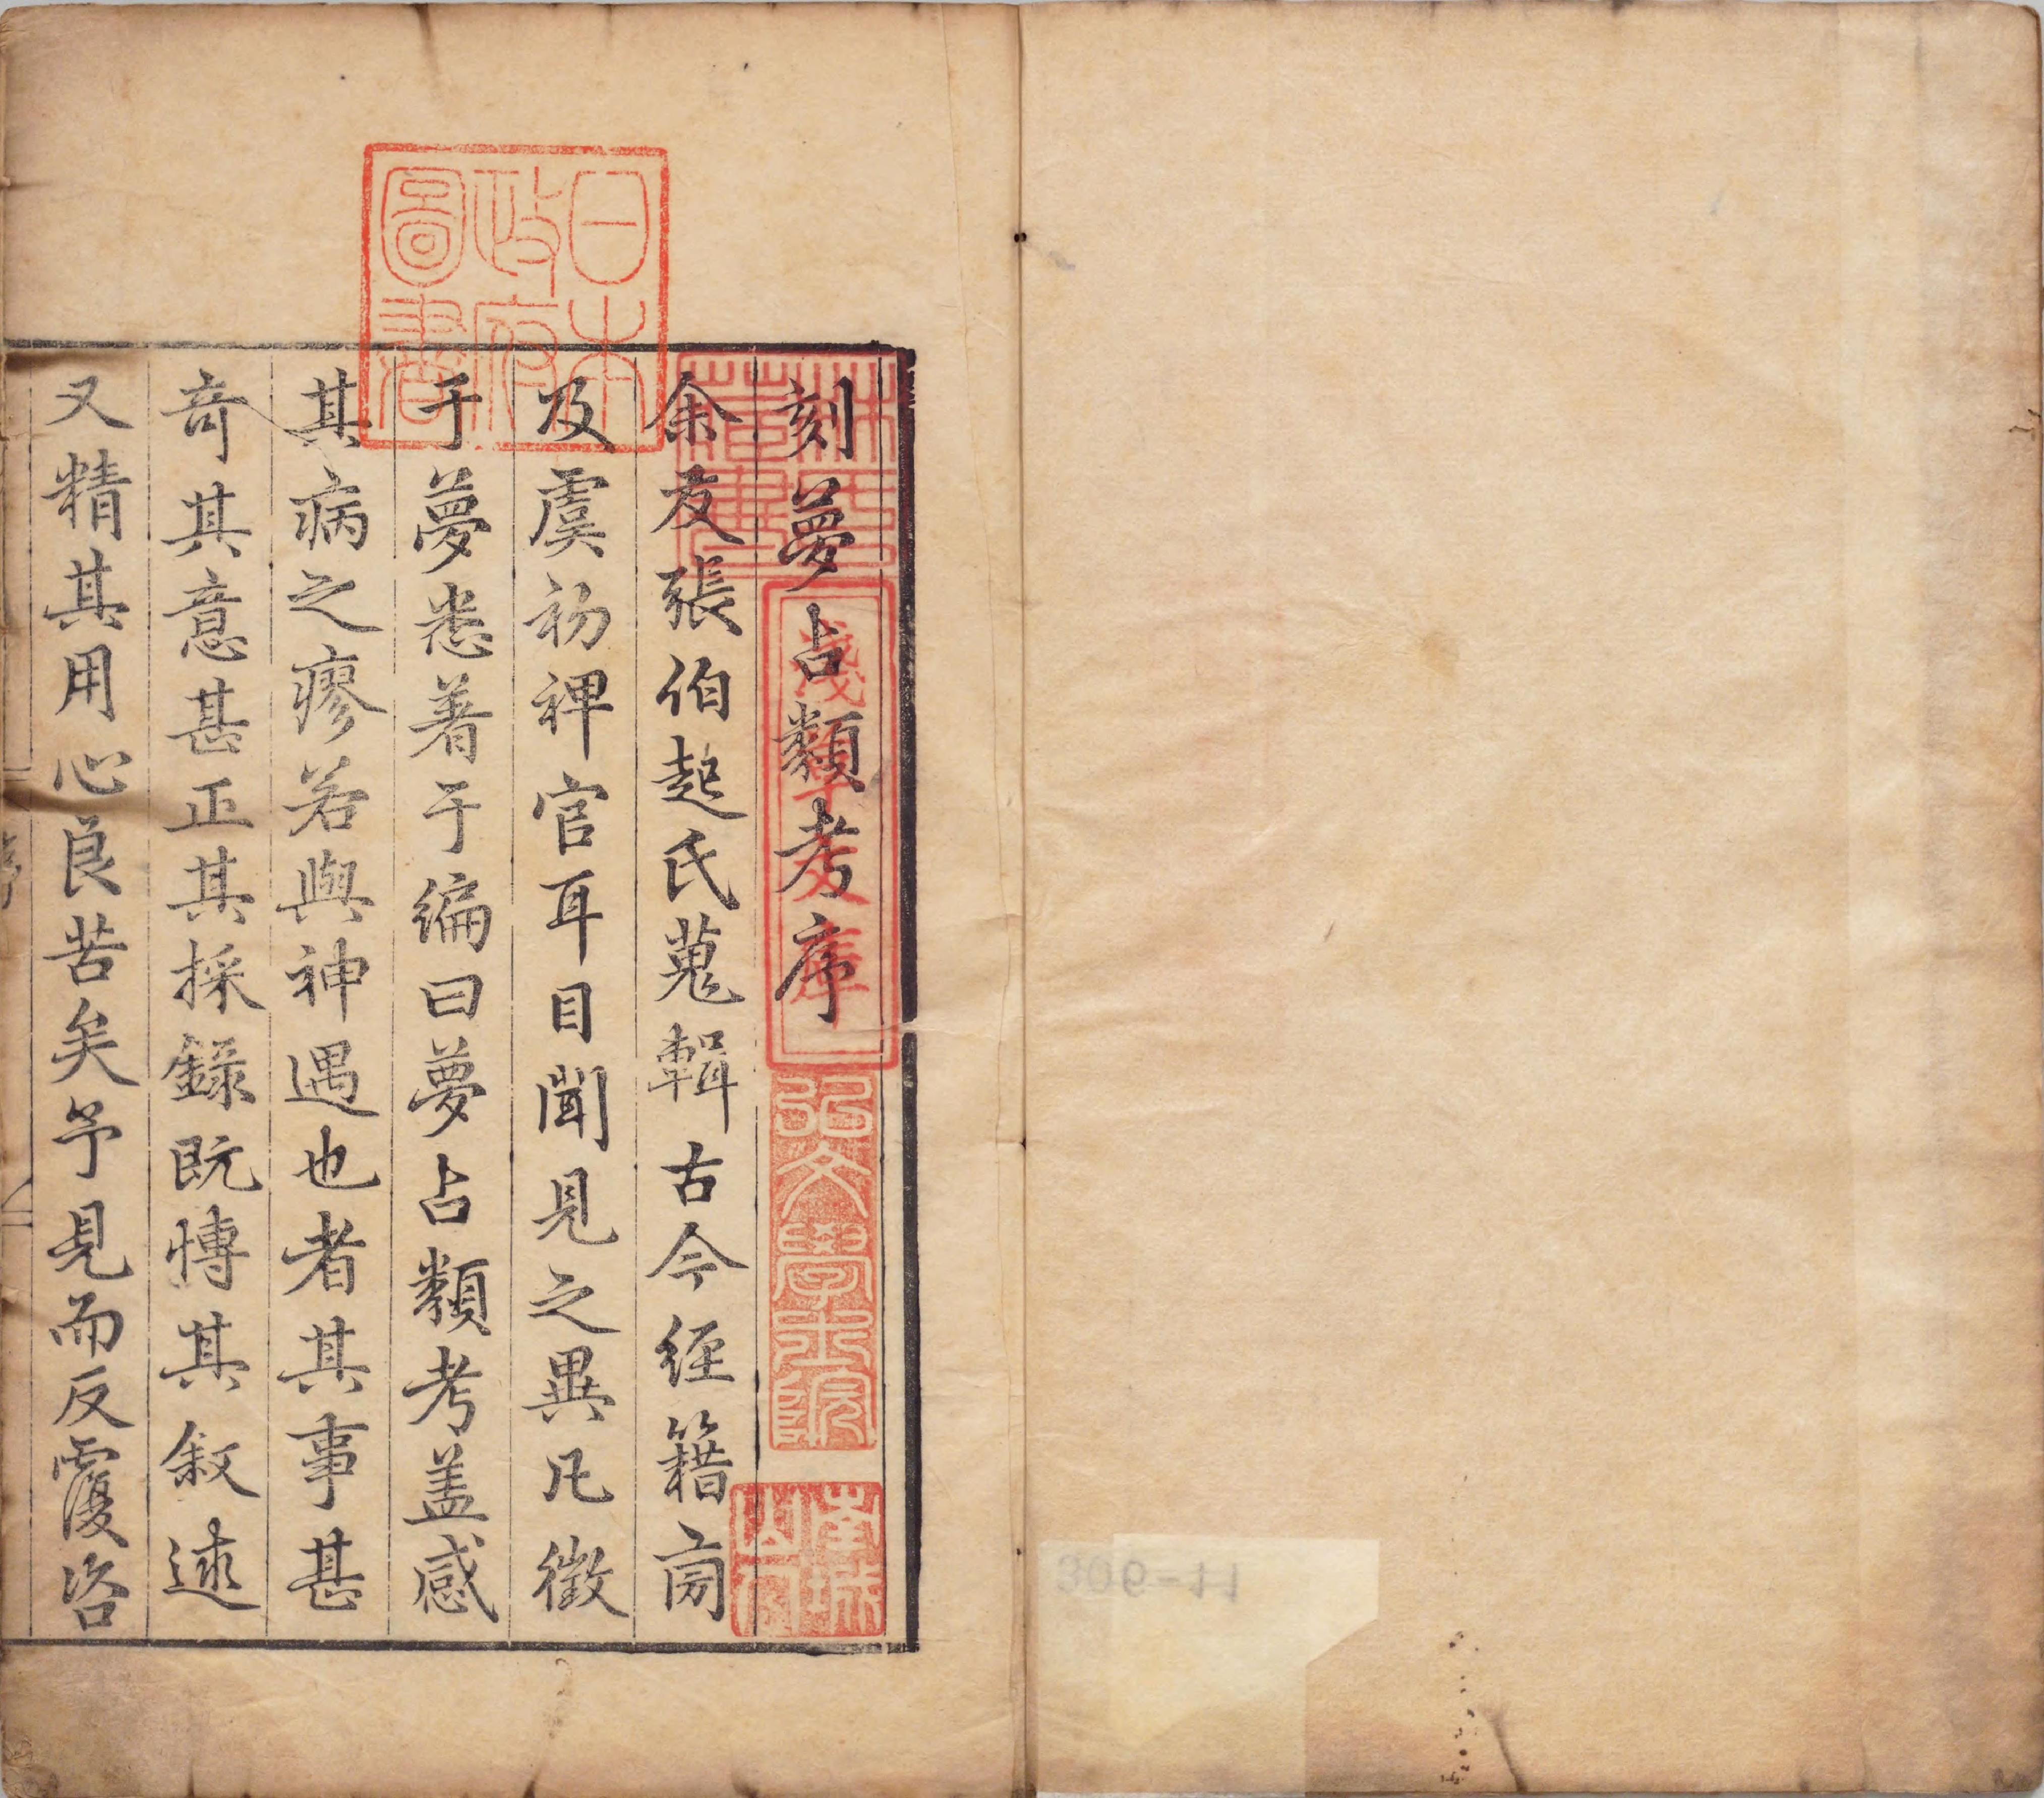 日本
政府
圖書
林氏
藏書
淺草文庫
弘文學士院
刻夢占類考序
余友張伯起氏蒐輯古今經籍㫄
及虞初裨官耳目聞見之異凡徵
于夢悉著于編曰夢占類考盖感
其病之瘳若與神遇也者其事甚
奇其意甚正其採錄既愽其叙述
又精其用心良苦矣予見而反覆咨